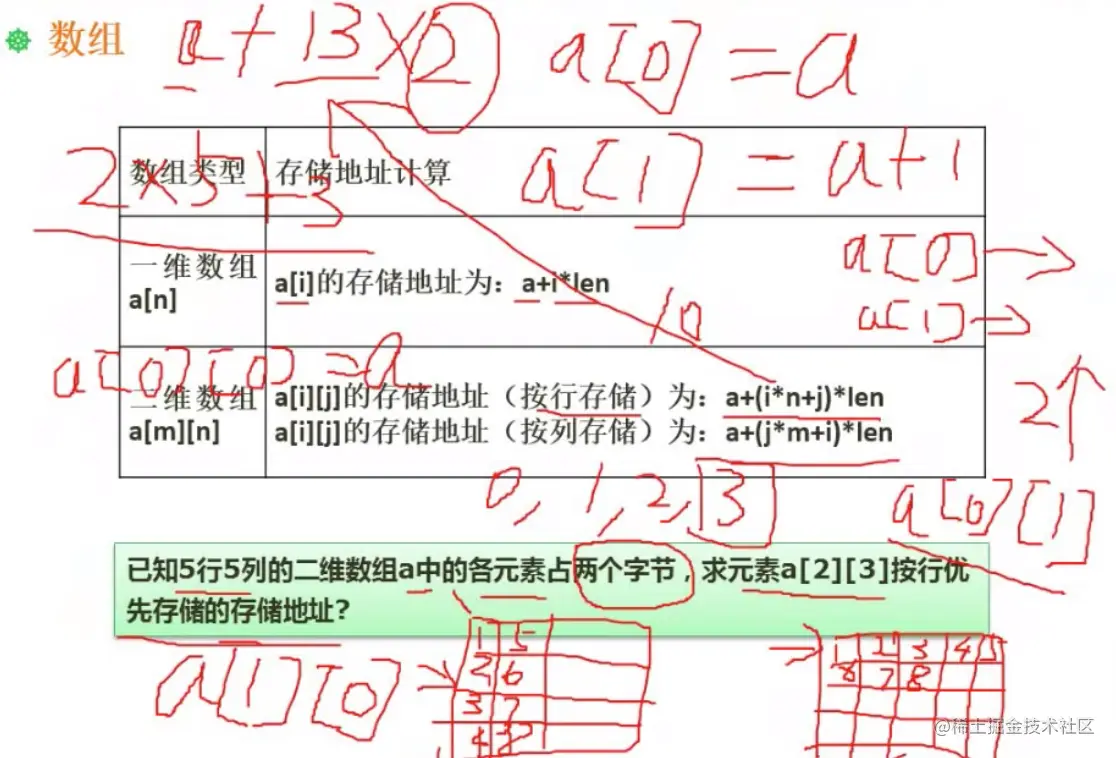 数组
a+13×2
a[0]=a
2×5+3
a[1]=a+1
数组类型 存储地址计算
a[0]
一维数组
a[n]
a[i]的存储地址为：a+i*len
a[1]
10
a[0][0]=a
二维数组
a[m][n]
a[i][j]的存储地址（按行存储）为：a+(i*n+j)*len
a[i][j]的存储地址（按列存储）为：a+(j*m+i)*len
2
0,1,2,3
a[0][1]
已知5行5列的二维数组a中的各元素占两个字节，求元素a[2][3]按行优
先存储的存储地址？
a[1][0]
1 5
2 6
3 7
4 8
1 2 3 4 5
8 7 8
@稀土掘金技术社区